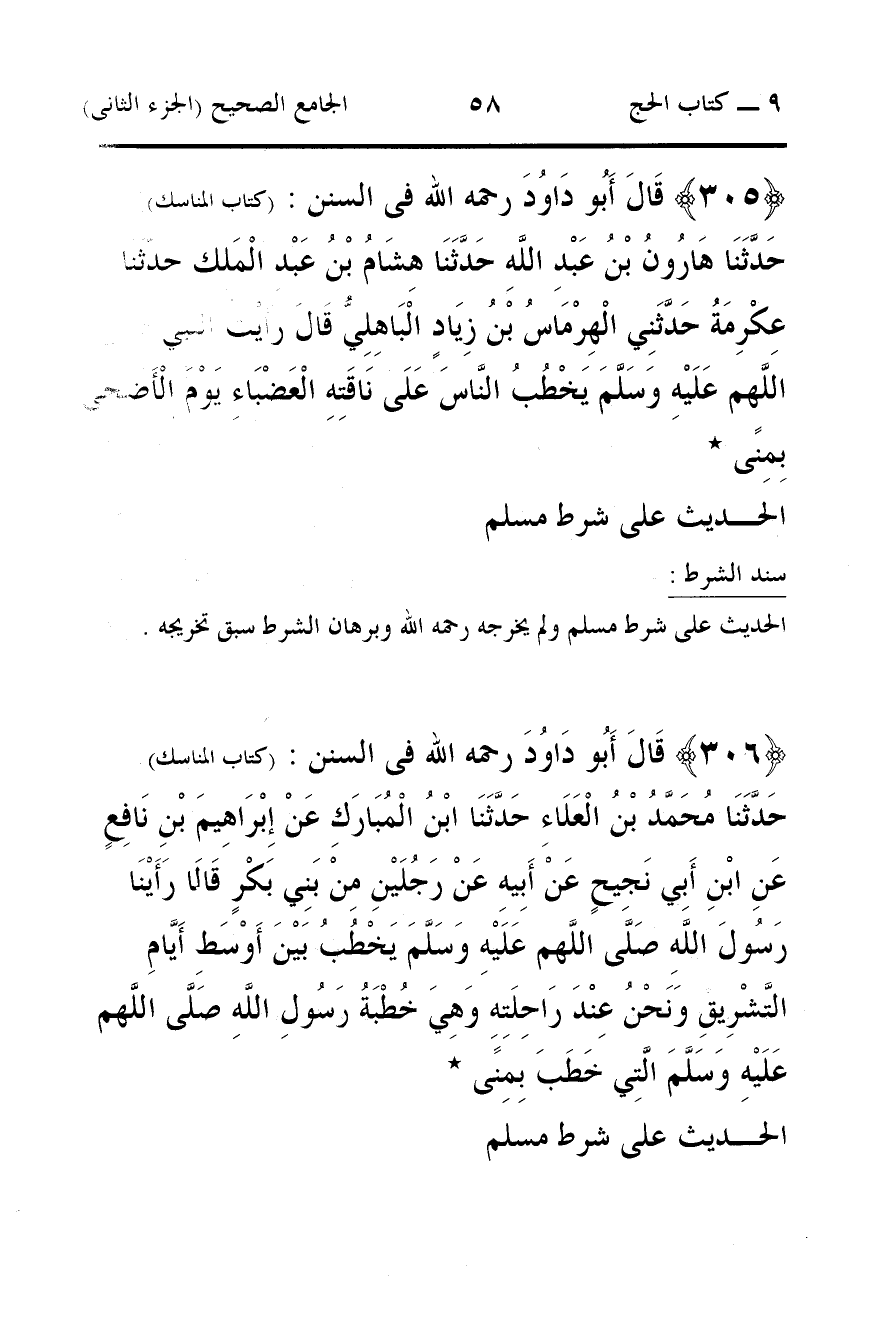 ٩ ــ كتاب الحج ٥٨ الجامع الصحيح (الجزء الثانى)
﴿٣٠٥﴾ قَالَ أَبُو دَاوُدَ رحمه الله فى السنن : (كتاب المناسك)
حَدَّثَنَا هَارُونُ بْنُ عَبْدِ اللَّهِ حَدَّثَنَا هِشَامُ بْنُ عَبْدِ الْمَلِكِ حدثنا
عِكْرِمَةُ حَدَّثَنِي الْهِرْمَاسُ بْنُ زِيَادٍ الْبَاهِلِيُّ قَالَ رَأَيْت النبي
اللَّهم عَلَيْهِ وَسَلَّمَ يَخْطُبُ النَّاسَ عَلَى نَاقَتِهِ الْعَضْبَاءِ يَوْمَ الْأَضْحى
بِمِنًى *
الحـــديث على شرط مسلم
سند الشرط :
الحديث على شرط مسلم ولم يخرجه رحمه الله وبرهان الشرط سبق تخريجه .
﴿٣٠٦﴾ قَالَ أَبُو دَاوُدَ رحمه الله فى السنن : (كتاب المناسك)
حَدَّثَنَا مُحَمَّدُ بْنُ الْعَلَاءِ حَدَّثَنَا ابْنُ الْمُبَارَكِ عَنْ إِبْرَاهِيمَ بْنِ نَافِعٍ
عَنِ ابْنِ أَبِي نَجِيحٍ عَنْ أَبِيهِ عَنْ رَجُلَيْنِ مِنْ بَنِي بَكْرٍ قَالَا رَأَيْنَا
رَسُولَ اللَّهِ صَلَّى اللَّهم عَلَيْهِ وَسَلَّمَ يَخْطُبُ بَيْنَ أَوْسَطِ أَيَّامِ
التَّشْرِيقِ وَنَحْنُ عِنْدَ رَاحِلَتِهِ وَهِيَ خُطْبَةُ رَسُولِ اللَّهِ صَلَّى اللَّهم
عَلَيْهِ وَسَلَّمَ الَّتِي خَطَبَ بِمِنًى *
الحـــديث على شرط مسلم